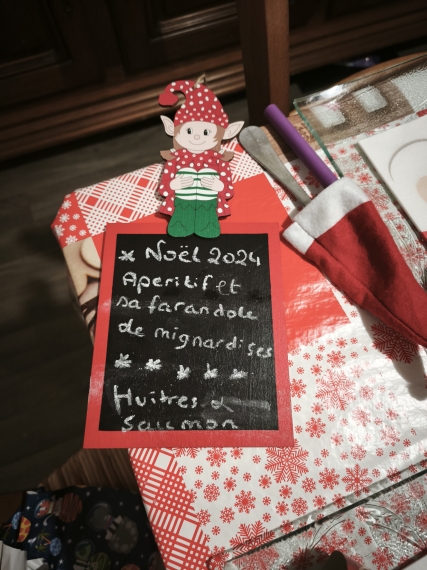 * Noël 2024
Aperitif et
sa farandole
de mignardises
* * * * *
Huitres &
saumon